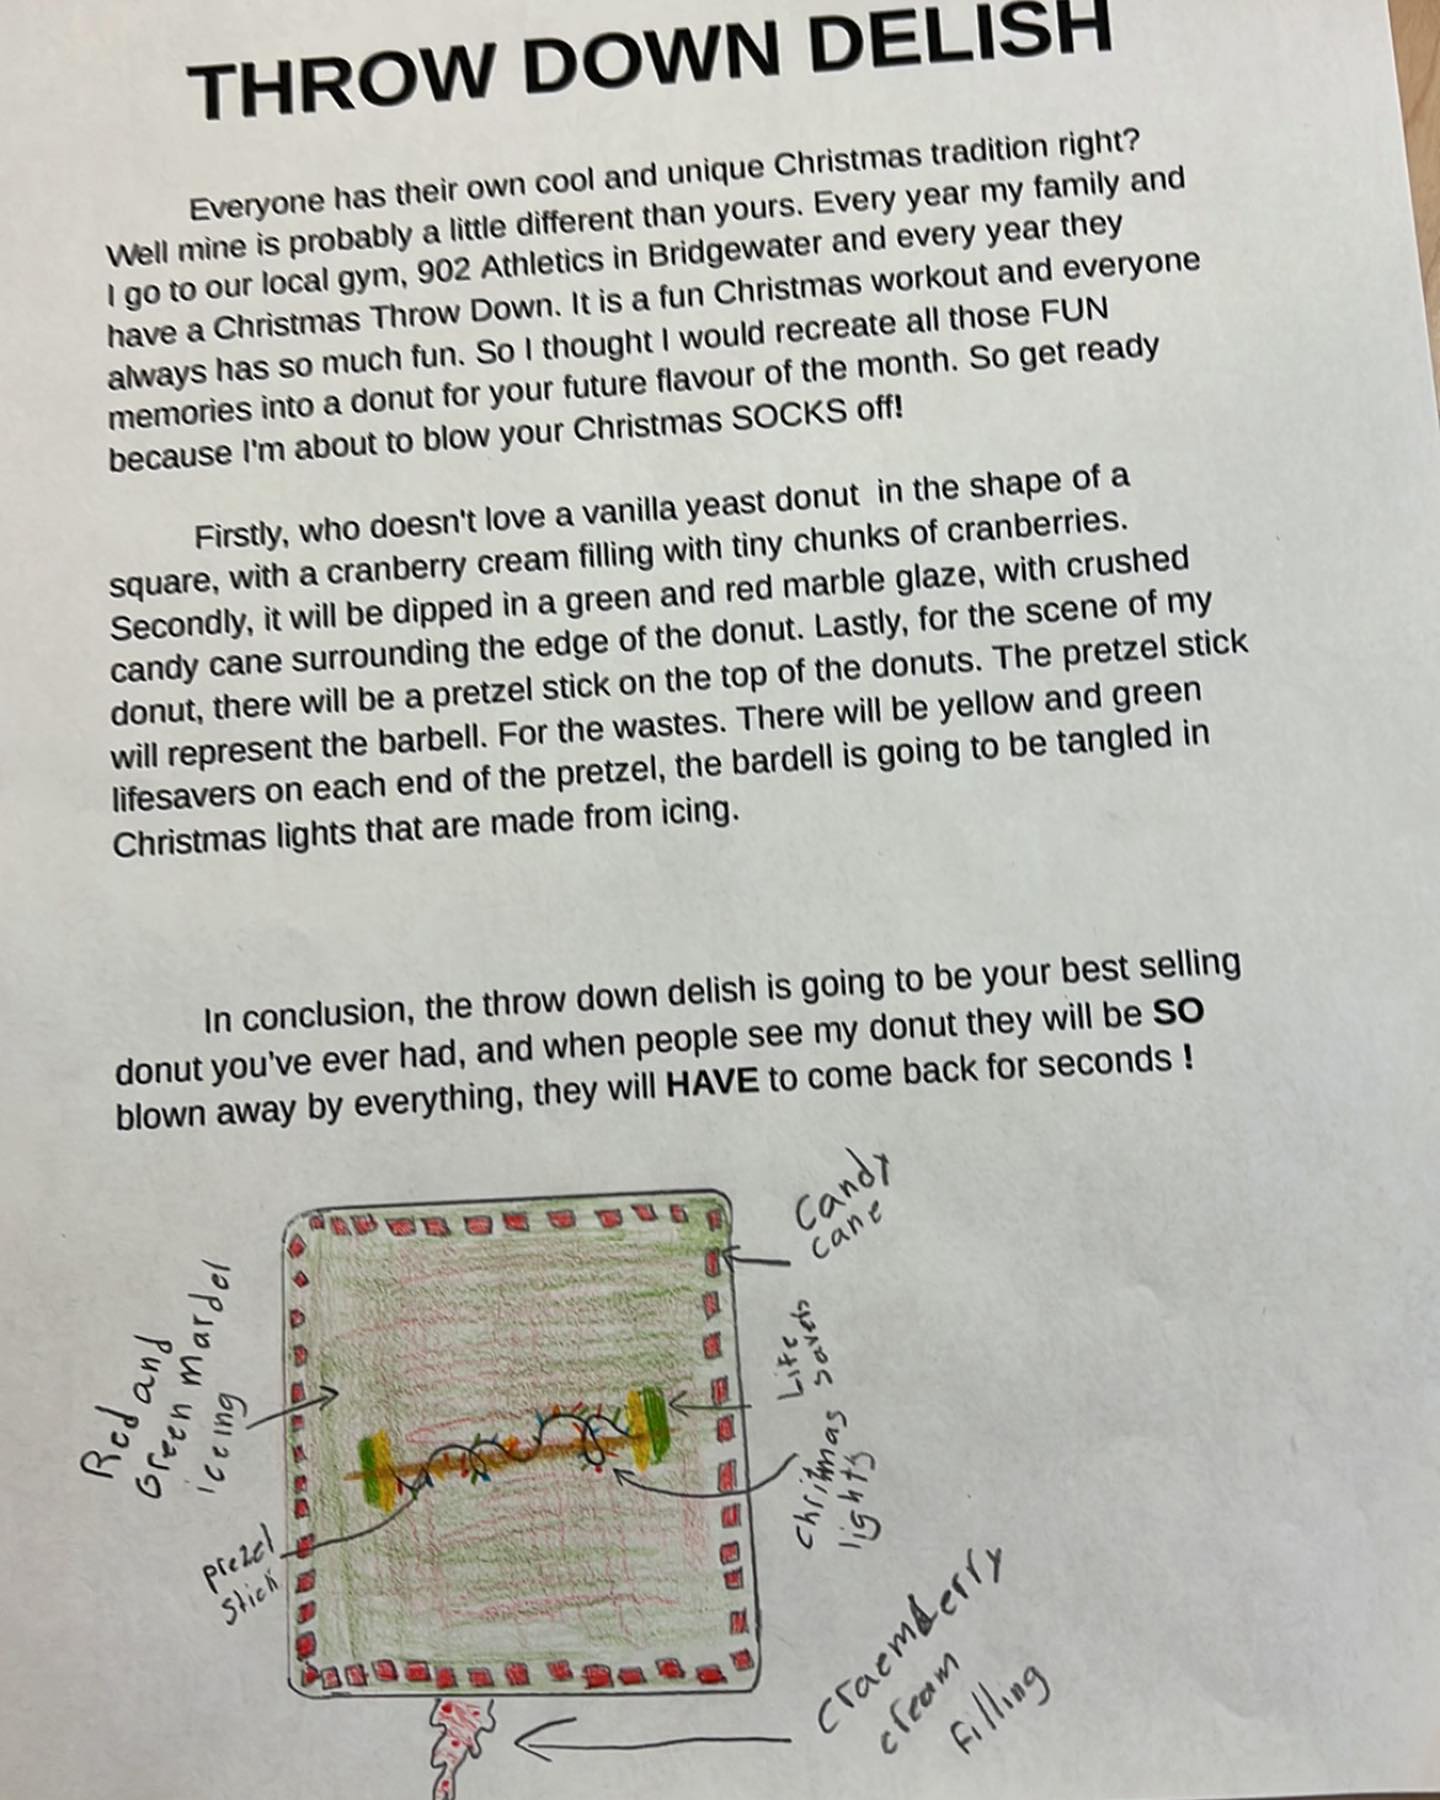 THROW DOWN DELISH
Everyone has their own cool and unique Christmas tradition right?
Well mine is probably a little different than yours. Every year my family and
I go to our local gym, 902 Athletics in Bridgewater and every year they
have a Christmas Throw Down. It is a fun Christmas workout and everyone
always has so much fun. So I thought I would recreate all those FUN
memories into a donut for your future flavour of the month. So get ready
because I'm about to blow your Christmas SOCKS off!
Firstly, who doesn't love a vanilla yeast donut  in the shape of a
square, with a cranberry cream filling with tiny chunks of cranberries.
Secondly, it will be dipped in a green and red marble glaze, with crushed
candy cane surrounding the edge of the donut. Lastly, for the scene of my
donut, there will be a pretzel stick on the top of the donuts. The pretzel stick
will represent the barbell. For the wastes. There will be yellow and green
lifesavers on each end of the pretzel, the bardell is going to be tangled in
Christmas lights that are made from icing.
In conclusion, the throw down delish is going to be your best selling
donut you've ever had, and when people see my donut they will be SO
blown away by everything, they will HAVE to come back for seconds !
Candy
cane
Red and
Green mardel
iceing
Life
savers
Chritmas
lights
prezel
stick
craemberry
cream
filling